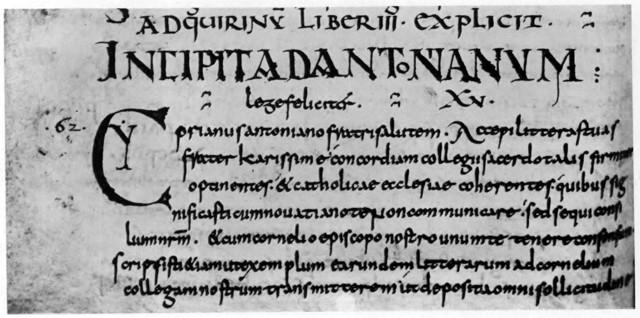 AD QUIRINŪ LIBER III · EXPLICIT ·
INCIPIT AD ANTONIANUM
lege feliciter XV ·
· 62 · Cyprianus antoniano fratri salutem · Accepi litteras tuas
frater karissime concordiam collegii sacerdotalis firmiter
optinentes · & catholicae ecclesiae coherentes · quibus sig
nificasti cum novatiano te non communicare · sed sequi consi
lium nr̄m · & cum cornelio episcopo nostro unum te tenere
scripsisti & iam ut exemplum earundem litterarum ad cornelium
collegam nostrum transmitterem ut deposita omni sollicitudine